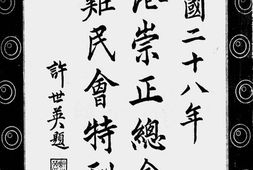 國二十八年
崇正總會
難民會特刊
許世英題